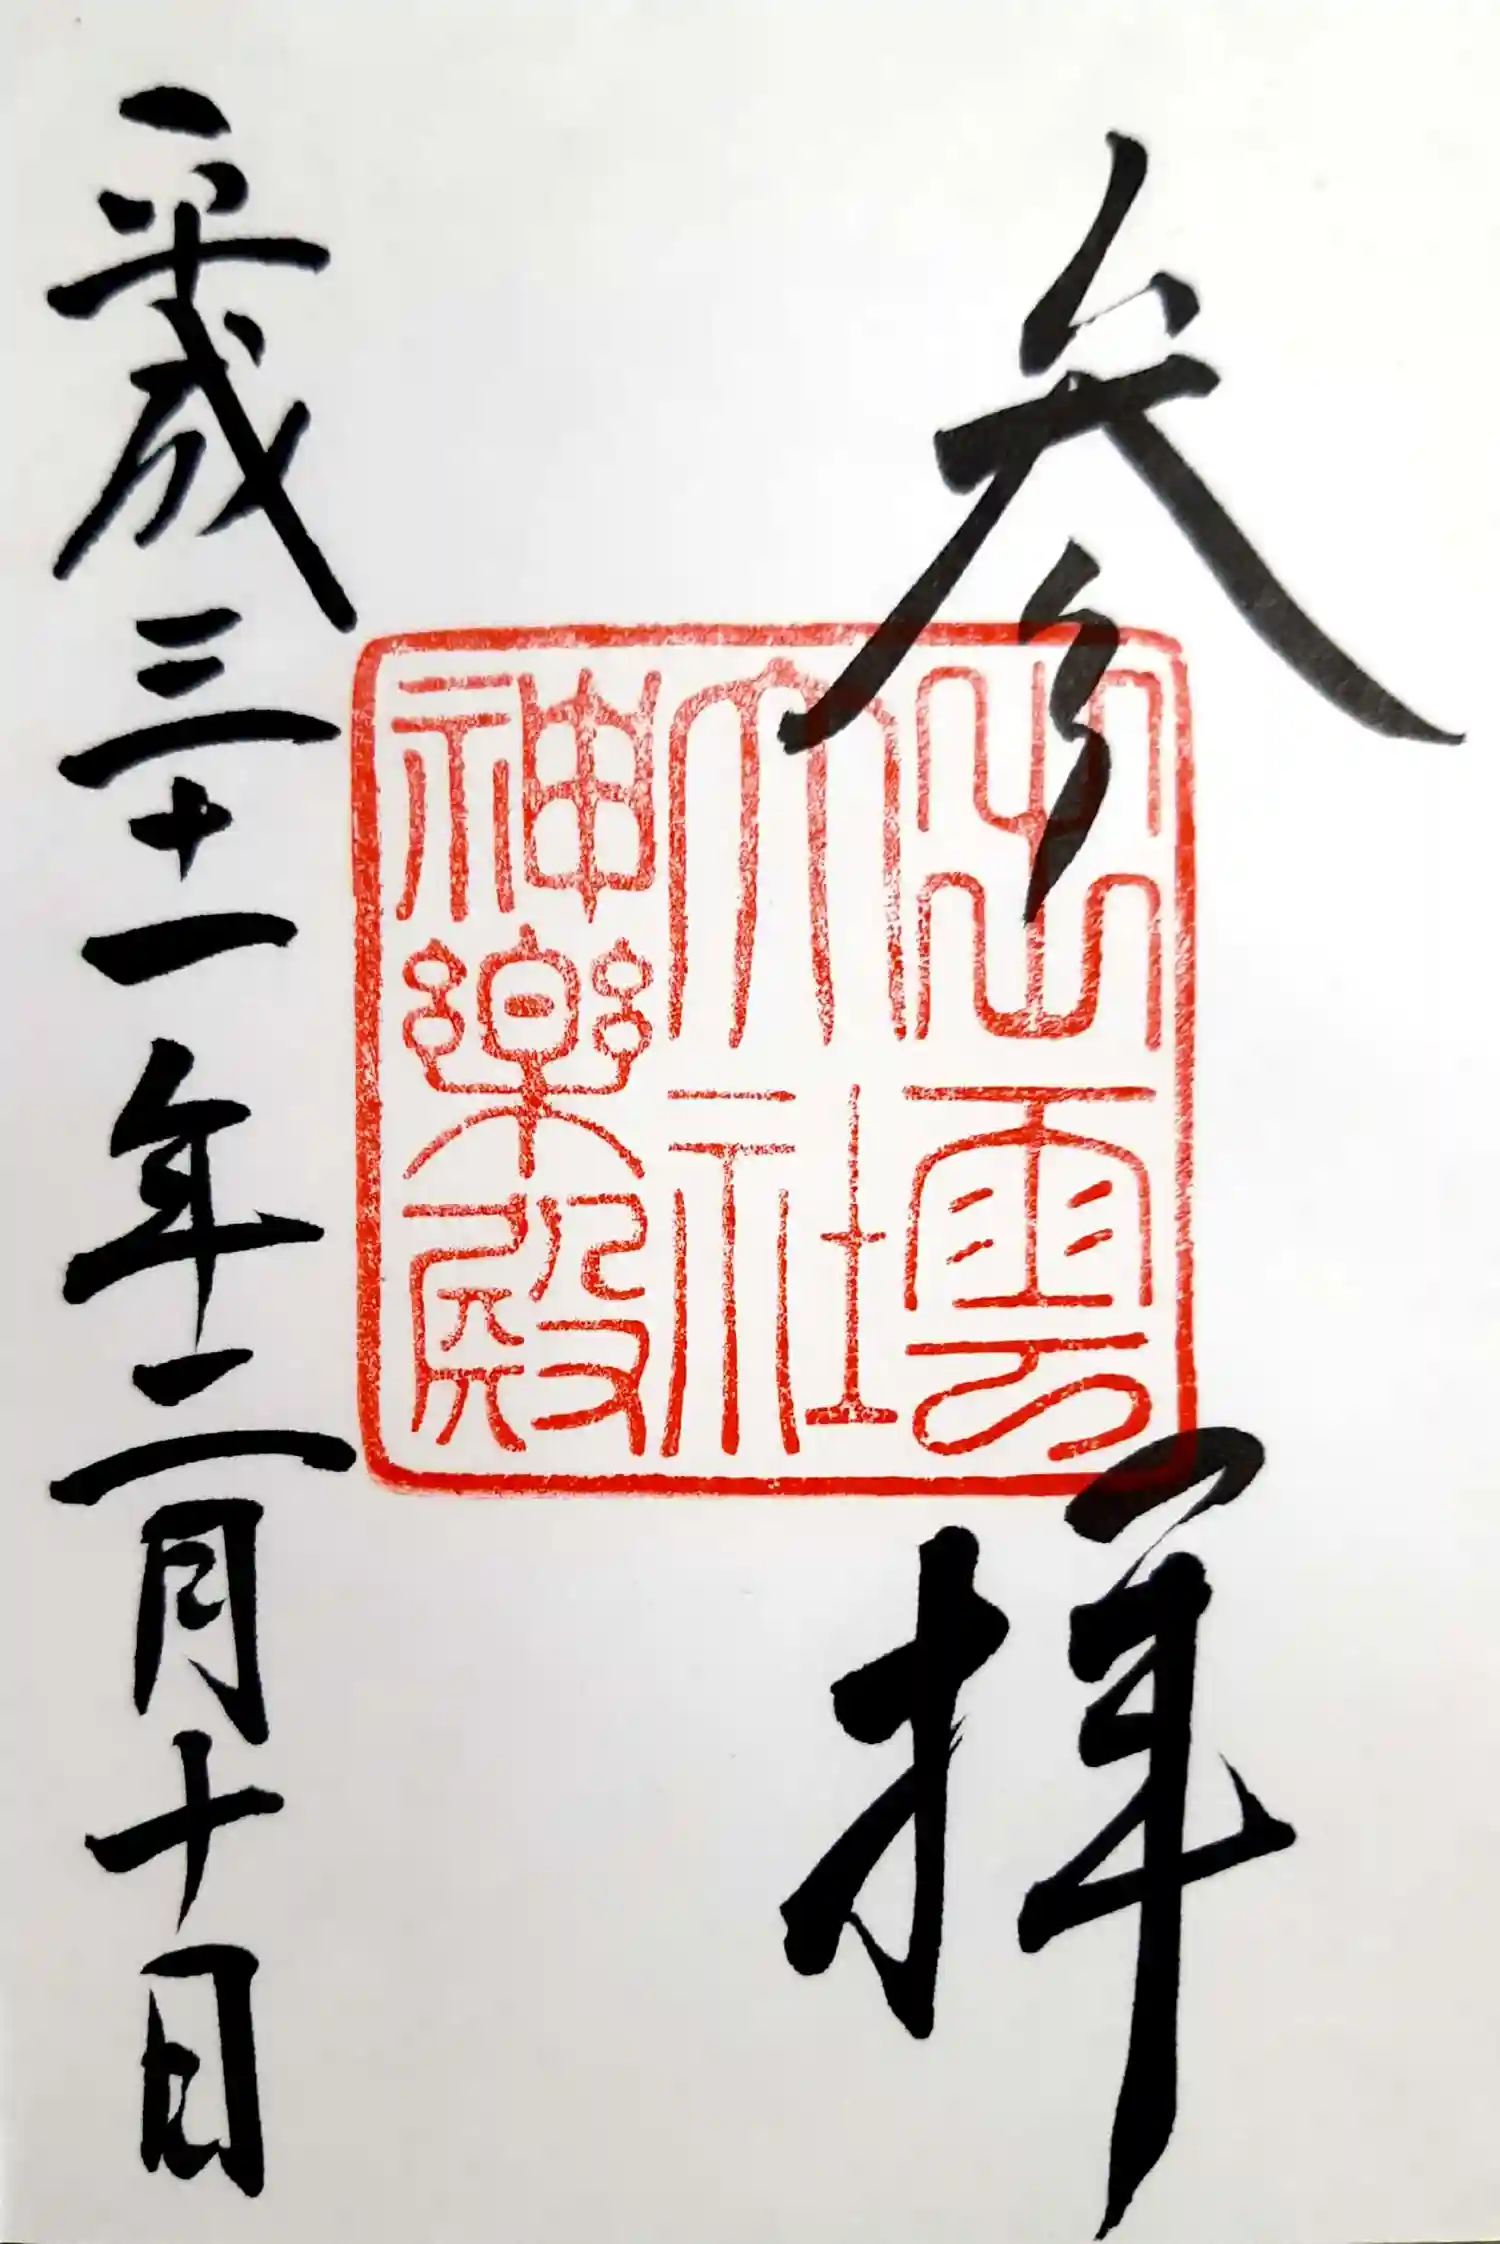 参拝
出雲
大社
神樂殿
平成三十一年二月十日